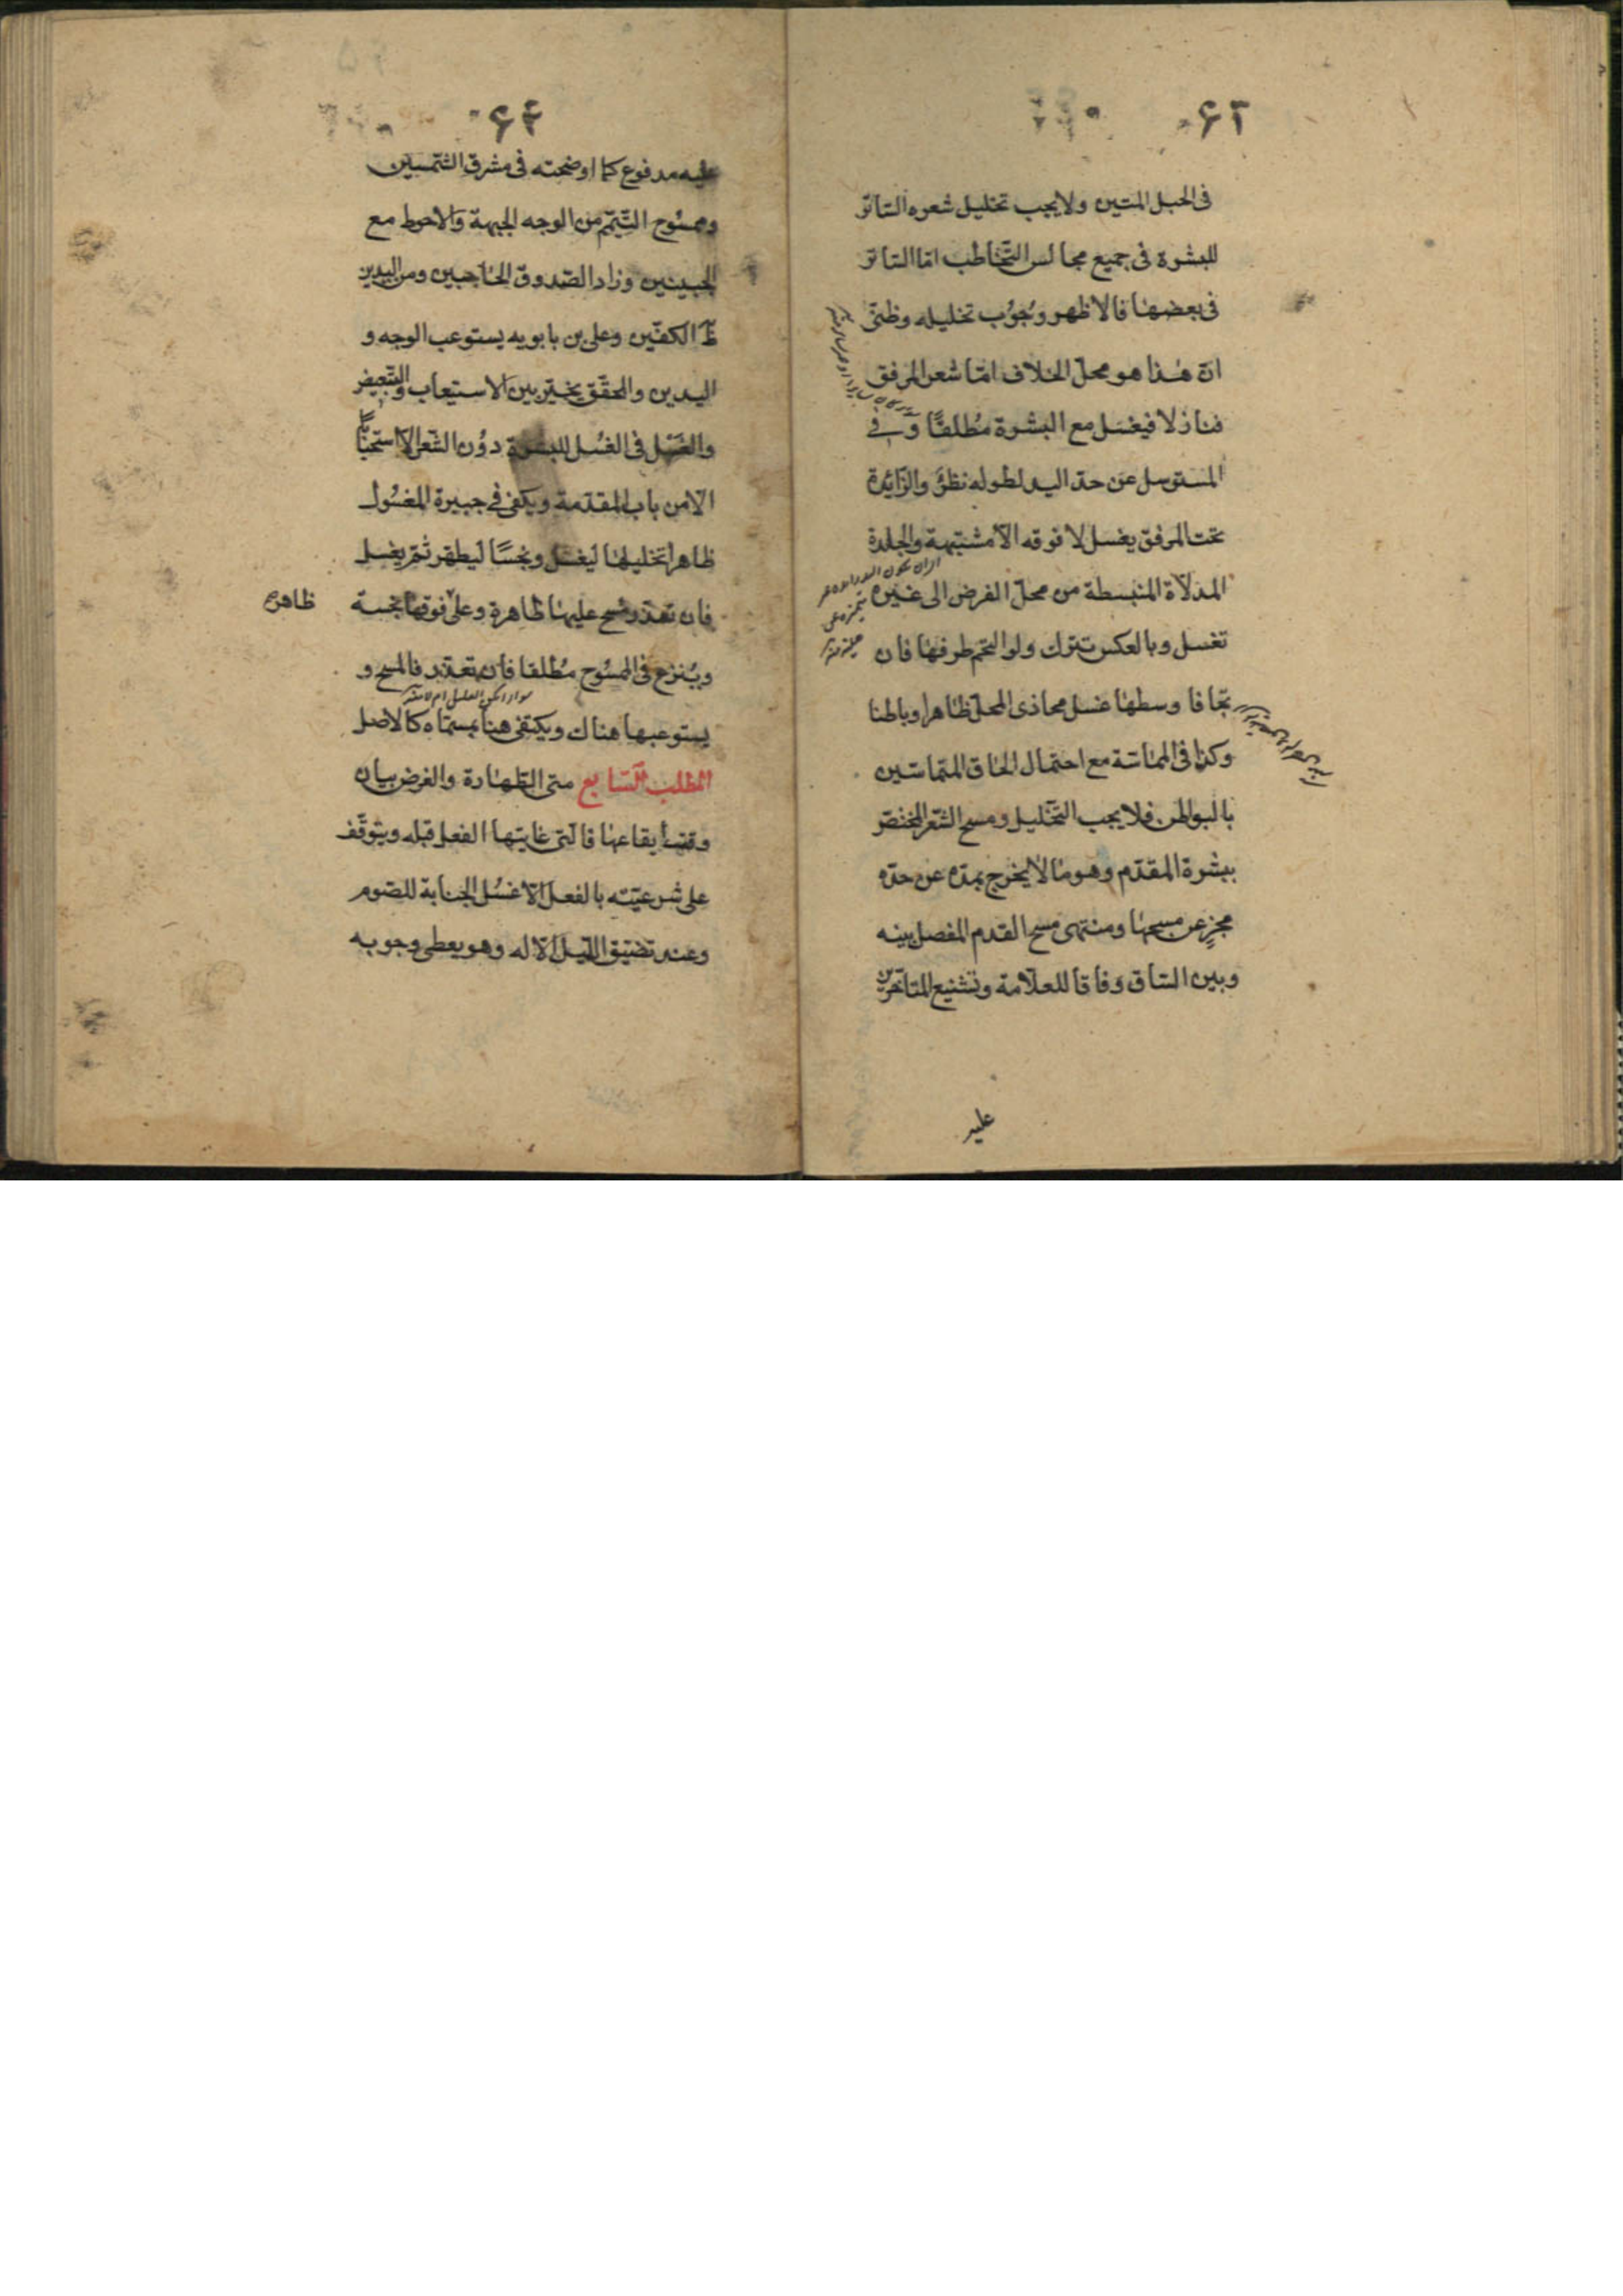 ۶۳
فى الحبل المتين ولا يجب تخليل شعره الساتر
للبشرة فى جميع مجالس التخاطب امّا الساتر
فى بعضها فالاظهر وجُوب تخليله وظنّى
انّ هٰذا هو محلّ الخلاف امّا شعر المرفق
فنازلا فيغسَل مع البشرة مُطلقًا وَفى
المسترسل عن حدّ اليد لطوله نظرٌ والزّائدة
تحت المرفق يغسل لا فوقه الّا مشتبهة والجلدة
المدلّاة المنبسطة من محلّ الفرض الى غيره
تغسل وبالعكس تترك ولو التحم طرفها فان
تجافا وسطها غسل محاذى المحلّ ظاهرا وباطنا
وكذا فى المماسّة مع احتمال الحاق المتماسّين
بالبواطن فلا يجب التّخليل ومسح الشّعر المختصّ
ببشرة المقدّم وهو ما لا يخرج بمدّه عن حدّه
مجزٍ عن مسحها ومنتهى مسح القدم المفصل بينه
وبين الساق وفاقا للعلّامة وتشنيع المتاخّرين
عليه
۶۴
عليه مدفوع كما اوضحته فى مشرق الشّمسين
وممسُوح التّيمّم من الوجه الجبهة والاحوط مع
الجبينين وزاد الصّدوق الحاجبين ومن اليدين
ظهر الكفّين وعلى بن بابويه يستوعب الوجه و
اليدين والمحقّق يخيّر بين الاستيعاب والتّبعيض
والغَسْل فى الغُسل للبشرة دوُن الشّعر الّا استحبابًا
الّا من باب المقدّمة ويكفى فى جبيرة المغسُول
ظاهرا تخليلها ليغسَل ونجسًا ليطهر ثمّ يغسل
فان تعذّر مسح عليها ظاهرة وعلى فوقها نجسة
ظاهره
ويُنزع فى الممسُوح مُطلقا فان تعذّر فالمسح و
يستوعبها هناك ويكتفى هنا بمسمّاه كالاصل
المطلب السّابع متى الطّهارة والغرض بيان
وقت ايقاعها فالتى غايتها الفعل قبله ويتوقّف
على شرعيّته بالفعل الّا غسُل الجنابة للصّوم
وعند تضيّق اللّيل الّا له وهو يعطى وجوبه